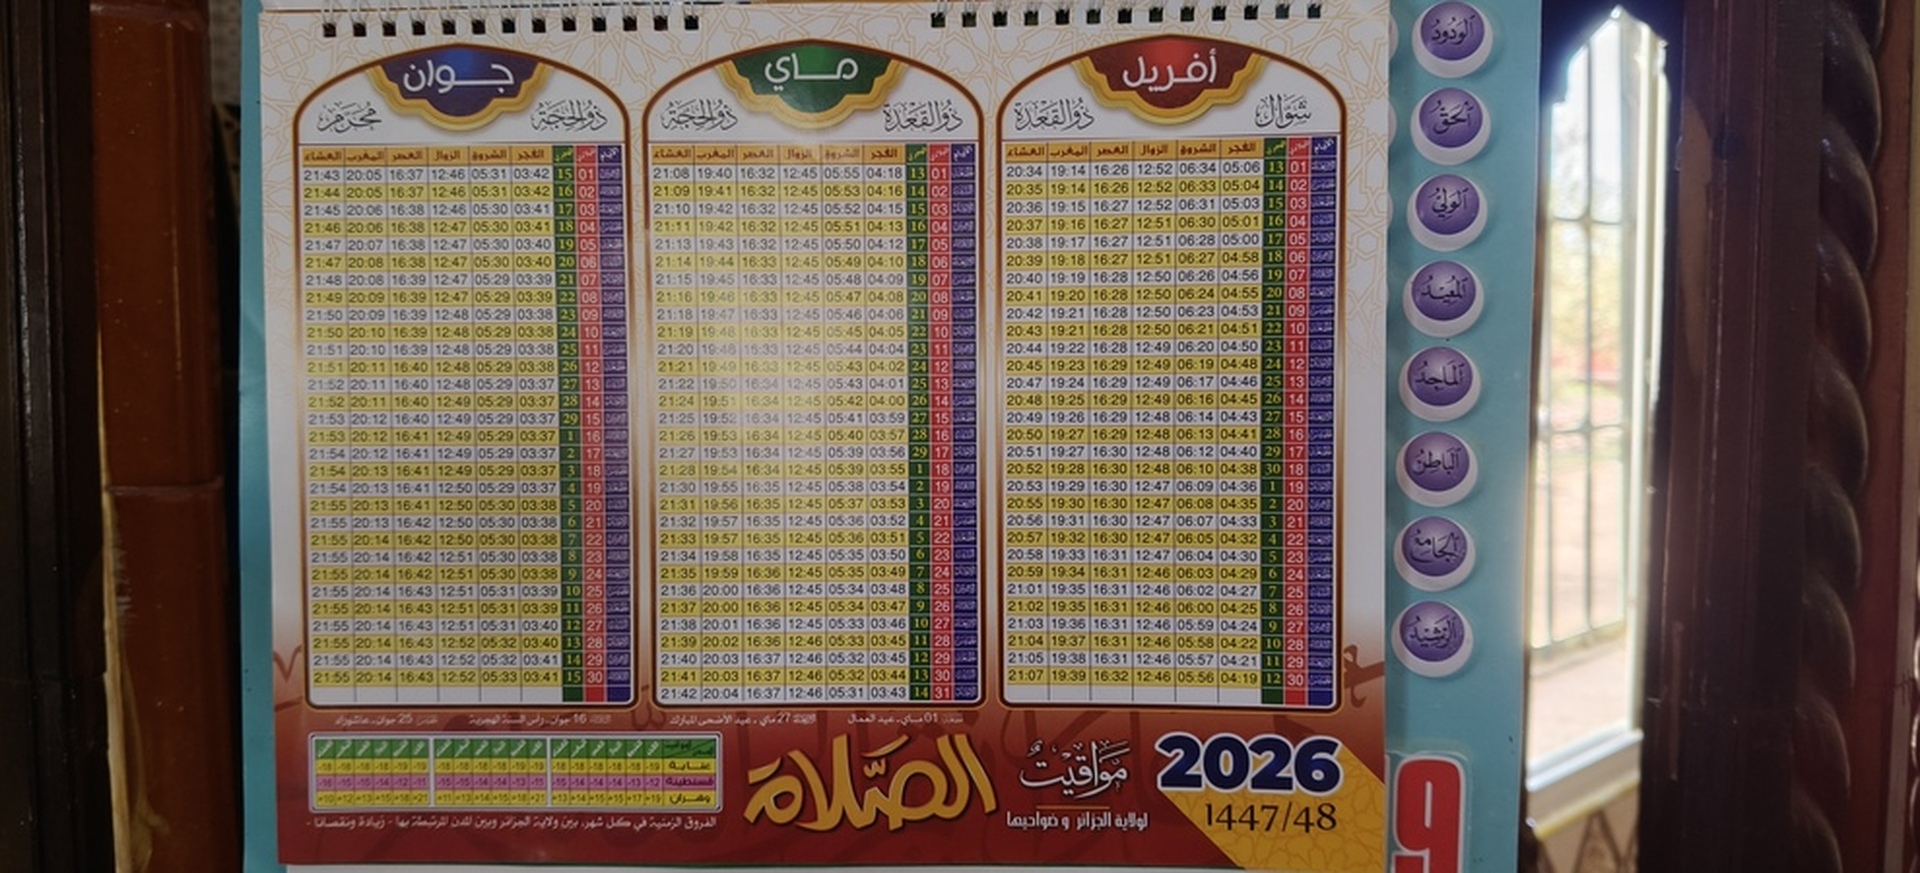 أفريل
شوّال ذو القعدة
الأيام ميلادي هجري الفجر الشروق الزوال العصر المغرب العشاء
01 13 05:06 06:34 12:52 16:26 19:14 20:34
02 14 05:04 06:33 12:52 16:26 19:14 20:35
03 15 05:03 06:31 12:52 16:27 19:15 20:36
04 16 05:01 06:30 12:51 16:27 19:16 20:37
05 17 05:00 06:28 12:51 16:27 19:17 20:38
06 18 04:58 06:27 12:51 16:27 19:18 20:39
07 19 04:56 06:26 12:50 16:28 19:19 20:40
08 20 04:55 06:24 12:50 16:28 19:20 20:41
09 21 04:53 06:23 12:50 16:28 19:21 20:42
10 22 04:51 06:21 12:50 16:28 19:21 20:43
11 23 04:50 06:20 12:49 16:28 19:22 20:44
12 24 04:48 06:19 12:49 16:29 19:23 20:45
13 25 04:46 06:17 12:49 16:29 19:24 20:47
14 26 04:45 06:16 12:49 16:29 19:25 20:48
15 27 04:43 06:14 12:48 16:29 19:26 20:49
16 28 04:41 06:13 12:48 16:29 19:27 20:50
17 29 04:40 06:12 12:48 16:30 19:27 20:51
18 30 04:38 06:10 12:48 16:30 19:28 20:52
19 1 04:36 06:09 12:47 16:30 19:29 20:53
20 2 04:35 06:08 12:47 16:30 19:30 20:55
21 3 04:33 06:07 12:47 16:30 19:31 20:56
22 4 04:32 06:05 12:47 16:30 19:32 20:57
23 5 04:30 06:04 12:47 16:31 19:33 20:58
24 6 04:29 06:03 12:46 16:31 19:34 20:59
25 7 04:27 06:02 12:46 16:31 19:35 21:01
26 8 04:25 06:00 12:46 16:31 19:35 21:02
27 9 04:24 05:59 12:46 16:31 19:36 21:03
28 10 04:22 05:58 12:46 16:31 19:37 21:04
29 11 04:21 05:57 12:46 16:31 19:38 21:05
30 12 04:19 05:56 12:46 16:32 19:39 21:07
ماي
ذو القعدة ذو الحجة
الأيام ميلادي هجري الفجر الشروق الزوال العصر المغرب العشاء
01 13 04:18 05:55 12:45 16:32 19:40 21:08
02 14 04:16 05:53 12:45 16:32 19:41 21:09
03 15 04:15 05:52 12:45 16:32 19:42 21:10
04 16 04:13 05:51 12:45 16:32 19:42 21:11
05 17 04:12 05:50 12:45 16:32 19:43 21:13
06 18 04:10 05:49 12:45 16:33 19:44 21:14
07 19 04:09 05:48 12:45 16:33 19:45 21:15
08 20 04:08 05:47 12:45 16:33 19:46 21:16
09 21 04:06 05:46 12:45 16:33 19:47 21:18
10 22 04:05 05:45 12:45 16:33 19:48 21:19
11 23 04:04 05:44 12:45 16:33 19:48 21:20
12 24 04:02 05:43 12:45 16:33 19:49 21:21
13 25 04:01 05:43 12:45 16:34 19:50 21:22
14 26 04:00 05:42 12:45 16:34 19:51 21:24
15 27 03:59 05:41 12:45 16:34 19:52 21:25
16 28 03:57 05:40 12:45 16:34 19:53 21:26
17 29 03:56 05:39 12:45 16:34 19:53 21:27
18 1 03:55 05:39 12:45 16:34 19:54 21:28
19 2 03:54 05:38 12:45 16:35 19:55 21:30
20 3 03:53 05:37 12:45 16:35 19:56 21:31
21 4 03:52 05:36 12:45 16:35 19:57 21:32
22 5 03:51 05:36 12:45 16:35 19:57 21:33
23 6 03:50 05:35 12:45 16:35 19:58 21:34
24 7 03:49 05:35 12:45 16:36 19:59 21:35
25 8 03:48 05:34 12:45 16:36 20:00 21:36
26 9 03:47 05:34 12:45 16:36 20:00 21:37
27 10 03:46 05:33 12:45 16:36 20:01 21:38
28 11 03:45 05:33 12:46 16:36 20:02 21:39
29 12 03:45 05:32 12:46 16:37 20:03 21:40
30 13 03:44 05:32 12:46 16:37 20:03 21:41
31 14 03:43 05:31 12:46 16:37 20:04 21:42
جوان
ذو الحجة محرم
الأيام ميلادي هجري الفجر الشروق الزوال العصر المغرب العشاء
01 15 03:42 05:31 12:46 16:37 20:05 21:43
02 16 03:42 05:31 12:46 16:37 20:05 21:44
03 17 03:41 05:30 12:46 16:38 20:06 21:45
04 18 03:41 05:30 12:47 16:38 20:06 21:46
05 19 03:40 05:30 12:47 16:38 20:07 21:47
06 20 03:40 05:30 12:47 16:38 20:08 21:47
07 21 03:39 05:29 12:47 16:39 20:08 21:48
08 22 03:39 05:29 12:47 16:39 20:09 21:49
09 23 03:38 05:29 12:47 16:39 20:09 21:50
10 24 03:38 05:29 12:47 16:39 20:10 21:50
11 25 03:38 05:29 12:48 16:39 20:10 21:51
12 26 03:38 05:29 12:48 16:40 20:11 21:51
13 27 03:37 05:29 12:48 16:40 20:11 21:52
14 28 03:37 05:29 12:49 16:40 20:11 21:52
15 29 03:37 05:29 12:49 16:40 20:12 21:53
16 1 03:37 05:29 12:49 16:41 20:12 21:53
17 2 03:37 05:29 12:49 16:41 20:12 21:54
18 3 03:37 05:29 12:49 16:41 20:13 21:54
19 4 03:37 05:29 12:50 16:41 20:13 21:54
20 5 03:38 05:30 12:50 16:41 20:13 21:55
21 6 03:38 05:30 12:50 16:42 20:13 21:55
22 7 03:38 05:30 12:50 16:42 20:14 21:55
23 8 03:38 05:30 12:51 16:42 20:14 21:55
24 9 03:38 05:30 12:51 16:42 20:14 21:55
25 10 03:39 05:31 12:51 16:43 20:14 21:55
26 11 03:39 05:31 12:51 16:43 20:14 21:55
27 12 03:40 05:31 12:51 16:43 20:14 21:55
28 13 03:40 05:32 12:52 16:43 20:14 21:55
29 14 03:41 05:32 12:52 16:43 20:14 21:55
30 15 03:41 05:33 12:52 16:43 20:14 21:55
01 ماي. عيد العمال
27 ماي. عيد الأضحى المبارك
16 جوان. رأس السنة الهجرية
25 جوان. عاشوراء
2026
1447/48
مواقيت
الصّلاة
لولاية الجزائر و ضواحيها
عنابة
قسنطينة
وهران
الفروق الزمنية في كل شهر، بين ولاية الجزائر وبين المدن المرتبطة بها - زيادة ونقصانا -
الودود
الحق
الولي
المعيد
الماجد
الباطن
الجامع
الرشيد
9